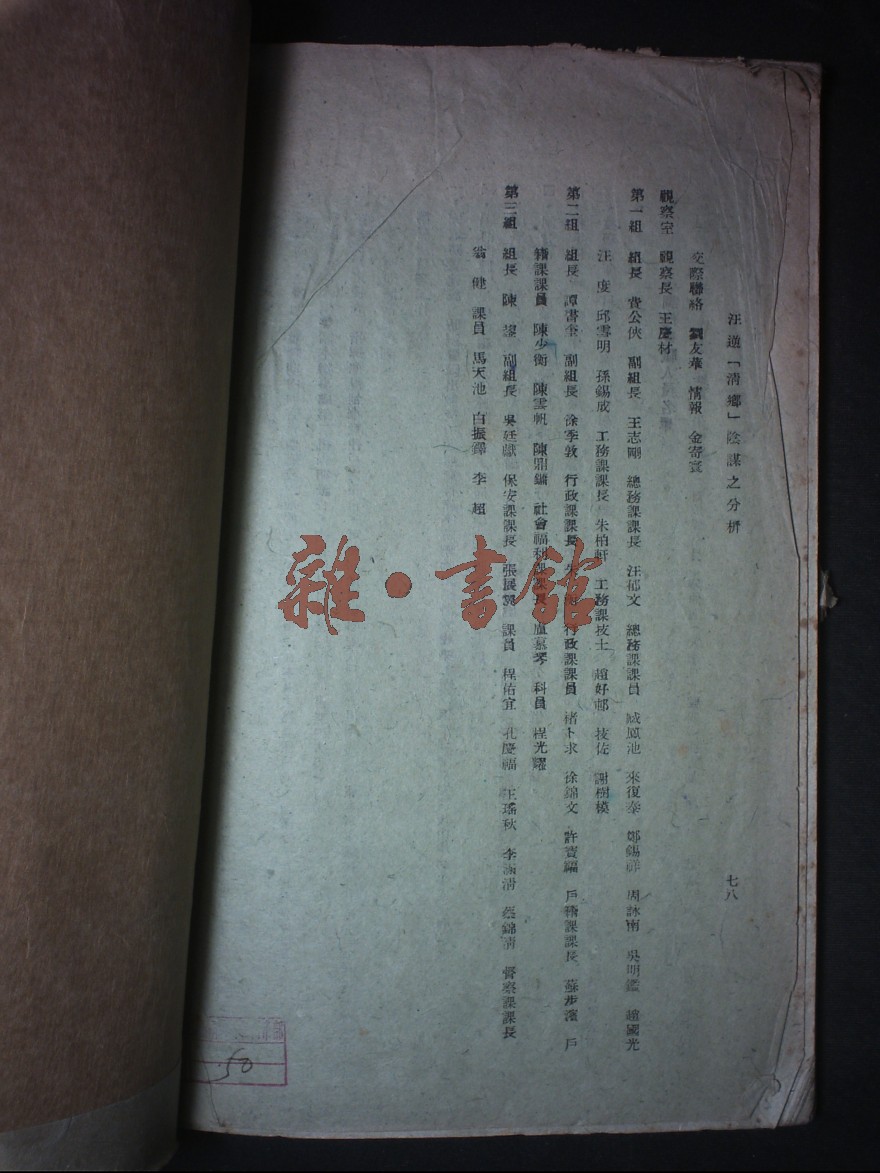 汪逆「清鄉」陰謀之分析
七八
交際聯絡 劉友華 情報 金寄寰
視察室 視察長 王慶材
第一組 組長 費公俠 副組長 王志剛 總務課課長 汪郁文 總務課課員 臧鳳池 來復泰 鄭錫祥 周詠南 吳明鑑 趙國光
汪度 邱雪明 孫錫成 工務課課長 朱柏軒 工務課技士 趙好邨 技佐 謝樹模
第二組 組長 譚書奎 副組長 徐季敦 行政課課長 行政課課員 褚卜求 徐錦文 許寶 戶籍課課長 蘇步濱 戶
籍課課員 陳少衡 陳雲帆 陳鼎鏞 社會福利課課長 盧慕琴 科員 程光耀
第三組 組長 陳 副組長 吳廷獻 保安課課長 張展翼 課員 程佑宜 孔慶福 王瑤秋 李清 蔡錦清 督察課課長
翁健 課員 馬天池 白振鐸 李超
雜·書館
50